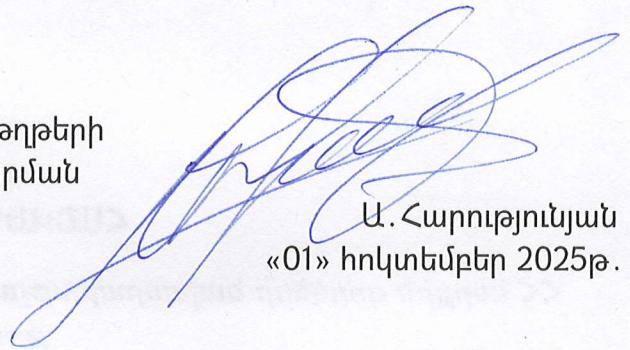 թղթերի
րման
Ա. Հարությունյան
«01» հոկտեմբեր 2025թ.